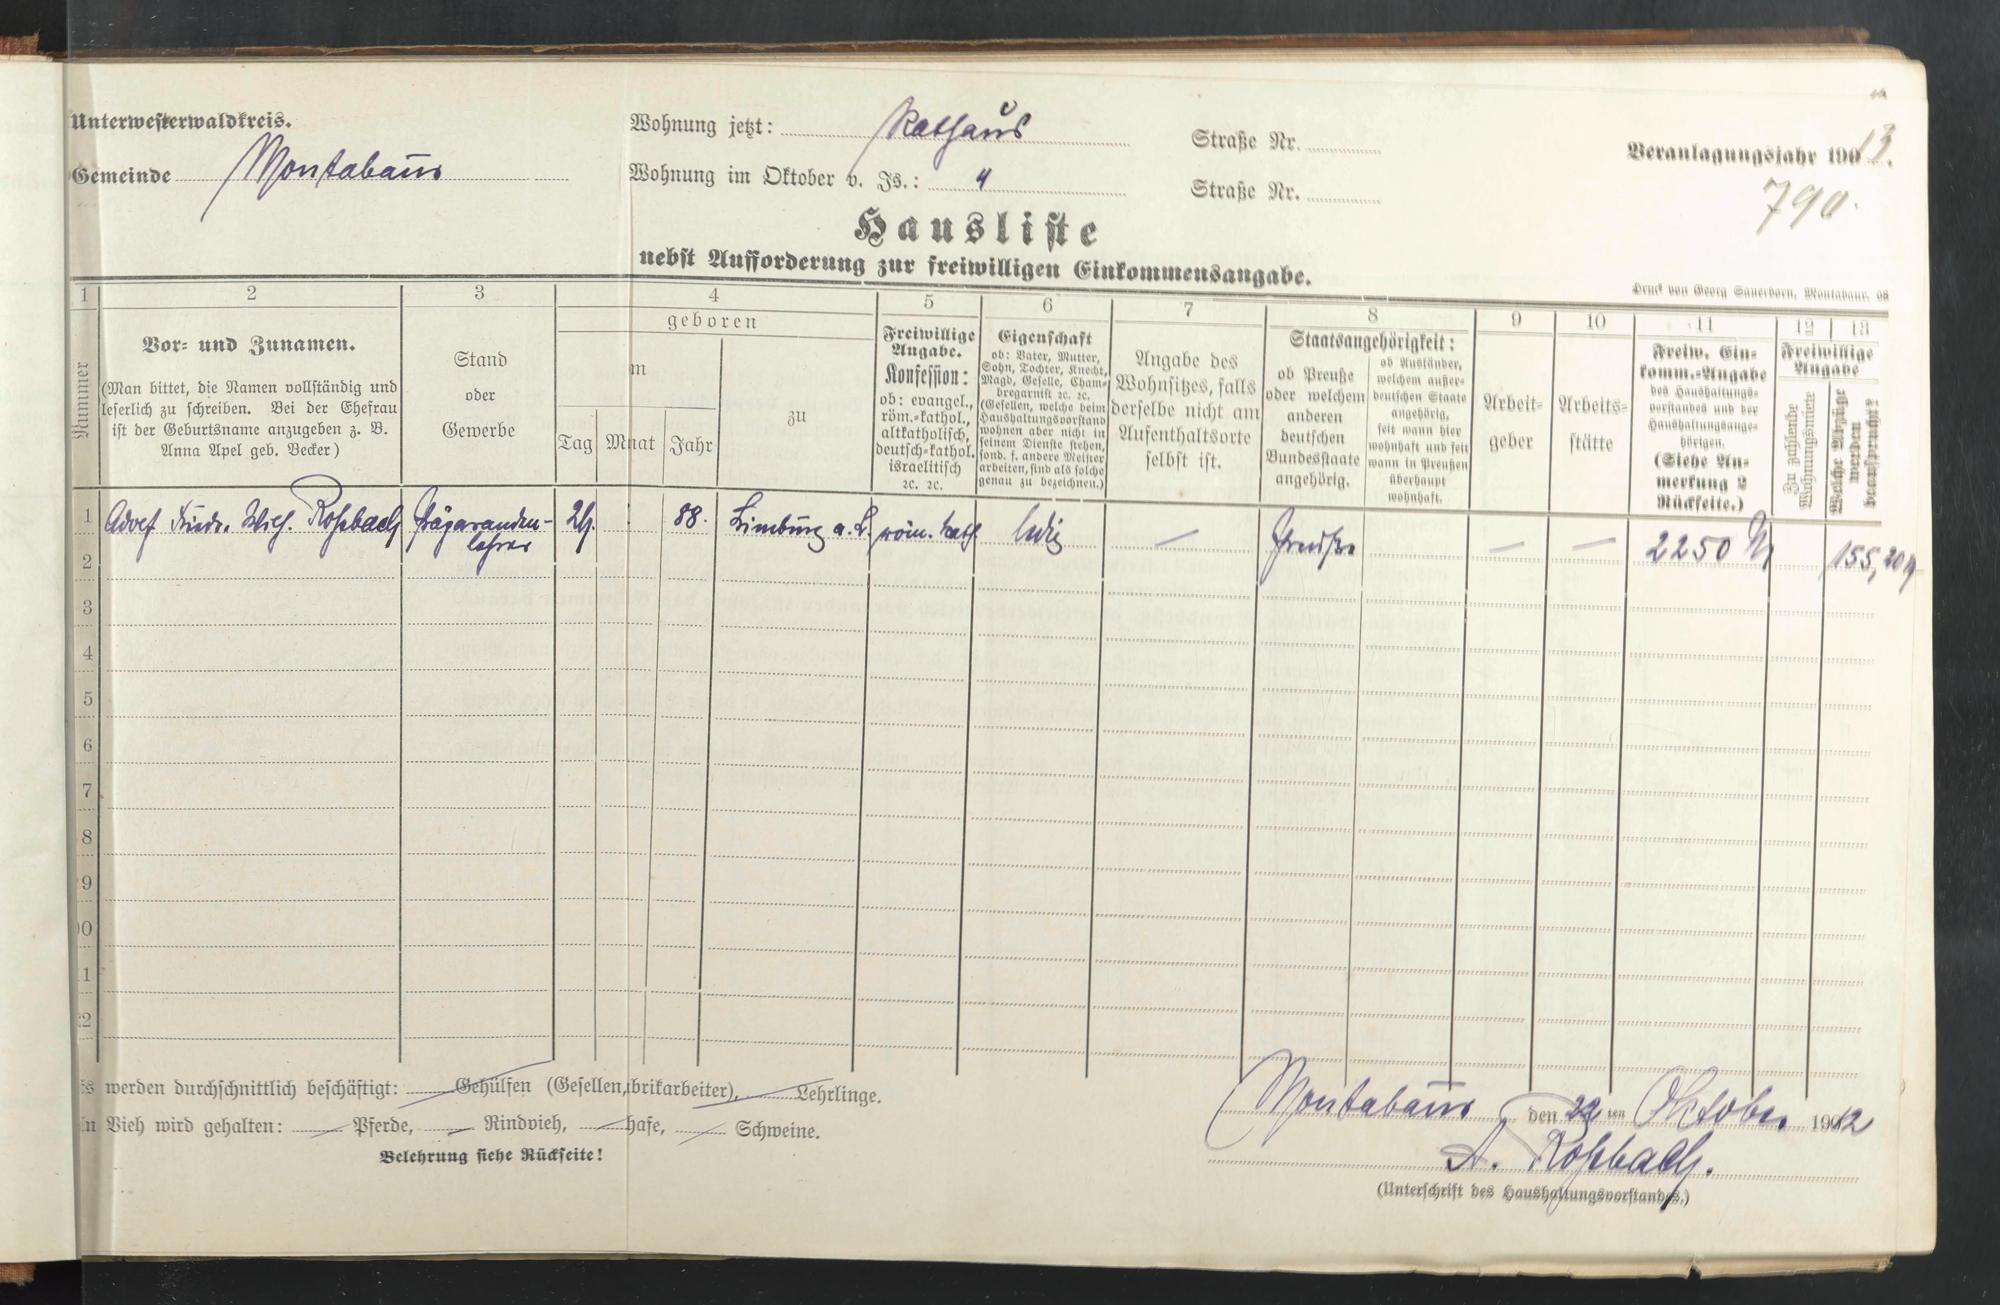 Unterwesterwaldkreis.
Gemeinde Montabaur
Wohnung jetzt: Rathaus Straße Nr.
Wohnung im Oktober v. Js.: " Straße Nr.
Veranlagungsjahr 1913.
790.
Hausliste
nebst Aufforderung zur freiwilligen Einkommensangabe.
Druck von Georg Sauerborn, Montabaur. 08
1 2 3 4 5 6 7 8 9 10 11 12 13
Nummer
Vor- und Zunamen.
(Man bittet, die Namen vollständig und
leserlich zu schreiben. Bei der Ehefrau
ist der Geburtsname anzugeben z. B.
Anna Apel geb. Becker)
Stand
oder
Gewerbe
geboren
m
Tag Mnat Jahr
zu
Freiwillige
Angabe.
Konfession:
ob: evangel.,
röm.-kathol.,
altkatholisch,
deutsch-kathol.
israelitisch
ꝛc. ꝛc.
Eigenschaft
ob: Vater, Mutter,
Sohn, Tochter, Knecht,
Magd, Geselle, Cham-
bregarnist ꝛc. ꝛc.
(Gesellen, welche beim
Haushaltungsvorstand
wohnen aber nicht in
seinem Dienste stehen,
sond. f. andere Meister
arbeiten, sind als solche
genau zu bezeichnen.)
Angabe des
Wohnsitzes, falls
derselbe nicht am
Aufenthaltsorte
selbst ist.
Staatsangehörigkeit:
ob Preuße
oder welchem
anderen
deutschen
Bundesstaate
angehörig.
ob Ausländer,
welchem außer-
deutschen Staate
angehörig,
seit wann hier
wohnhaft und seit
wann in Preußen
überhaupt
wohnhaft.
Arbeit-
geber
Arbeits-
stätte
Freiw. Ein-
komm.-Angabe
des Haushaltungs-
vorstandes und der
Haushaltungsange-
hörigen.
(Siehe An-
merkung 2
Rückseite.)
Freiwillige
Angabe
Zu zahlende
Wohnungsmiete
Welche Abzüge
werden
beansprucht?
1 Adolf Friedr. Wilh. Roßbach Präparanden- 24. 88. Limburg a. L. röm. kath. ledig — Preuße — — 2250 M 155,20 M
lehrer
2
3
4
5
6
7
8
9
10
11
12
Es werden durchschnittlich beschäftigt: Gehülfen (Gesellen, brikarbeiter), Lehrlinge.
An Vieh wird gehalten: Pferde, Rindvieh, hafe, Schweine.
Belehrung siehe Rückseite!
Montabaur den 22ten Oktober 1912
A. Roßbach.
(Unterschrift des Haushaltungsvorstandes.)